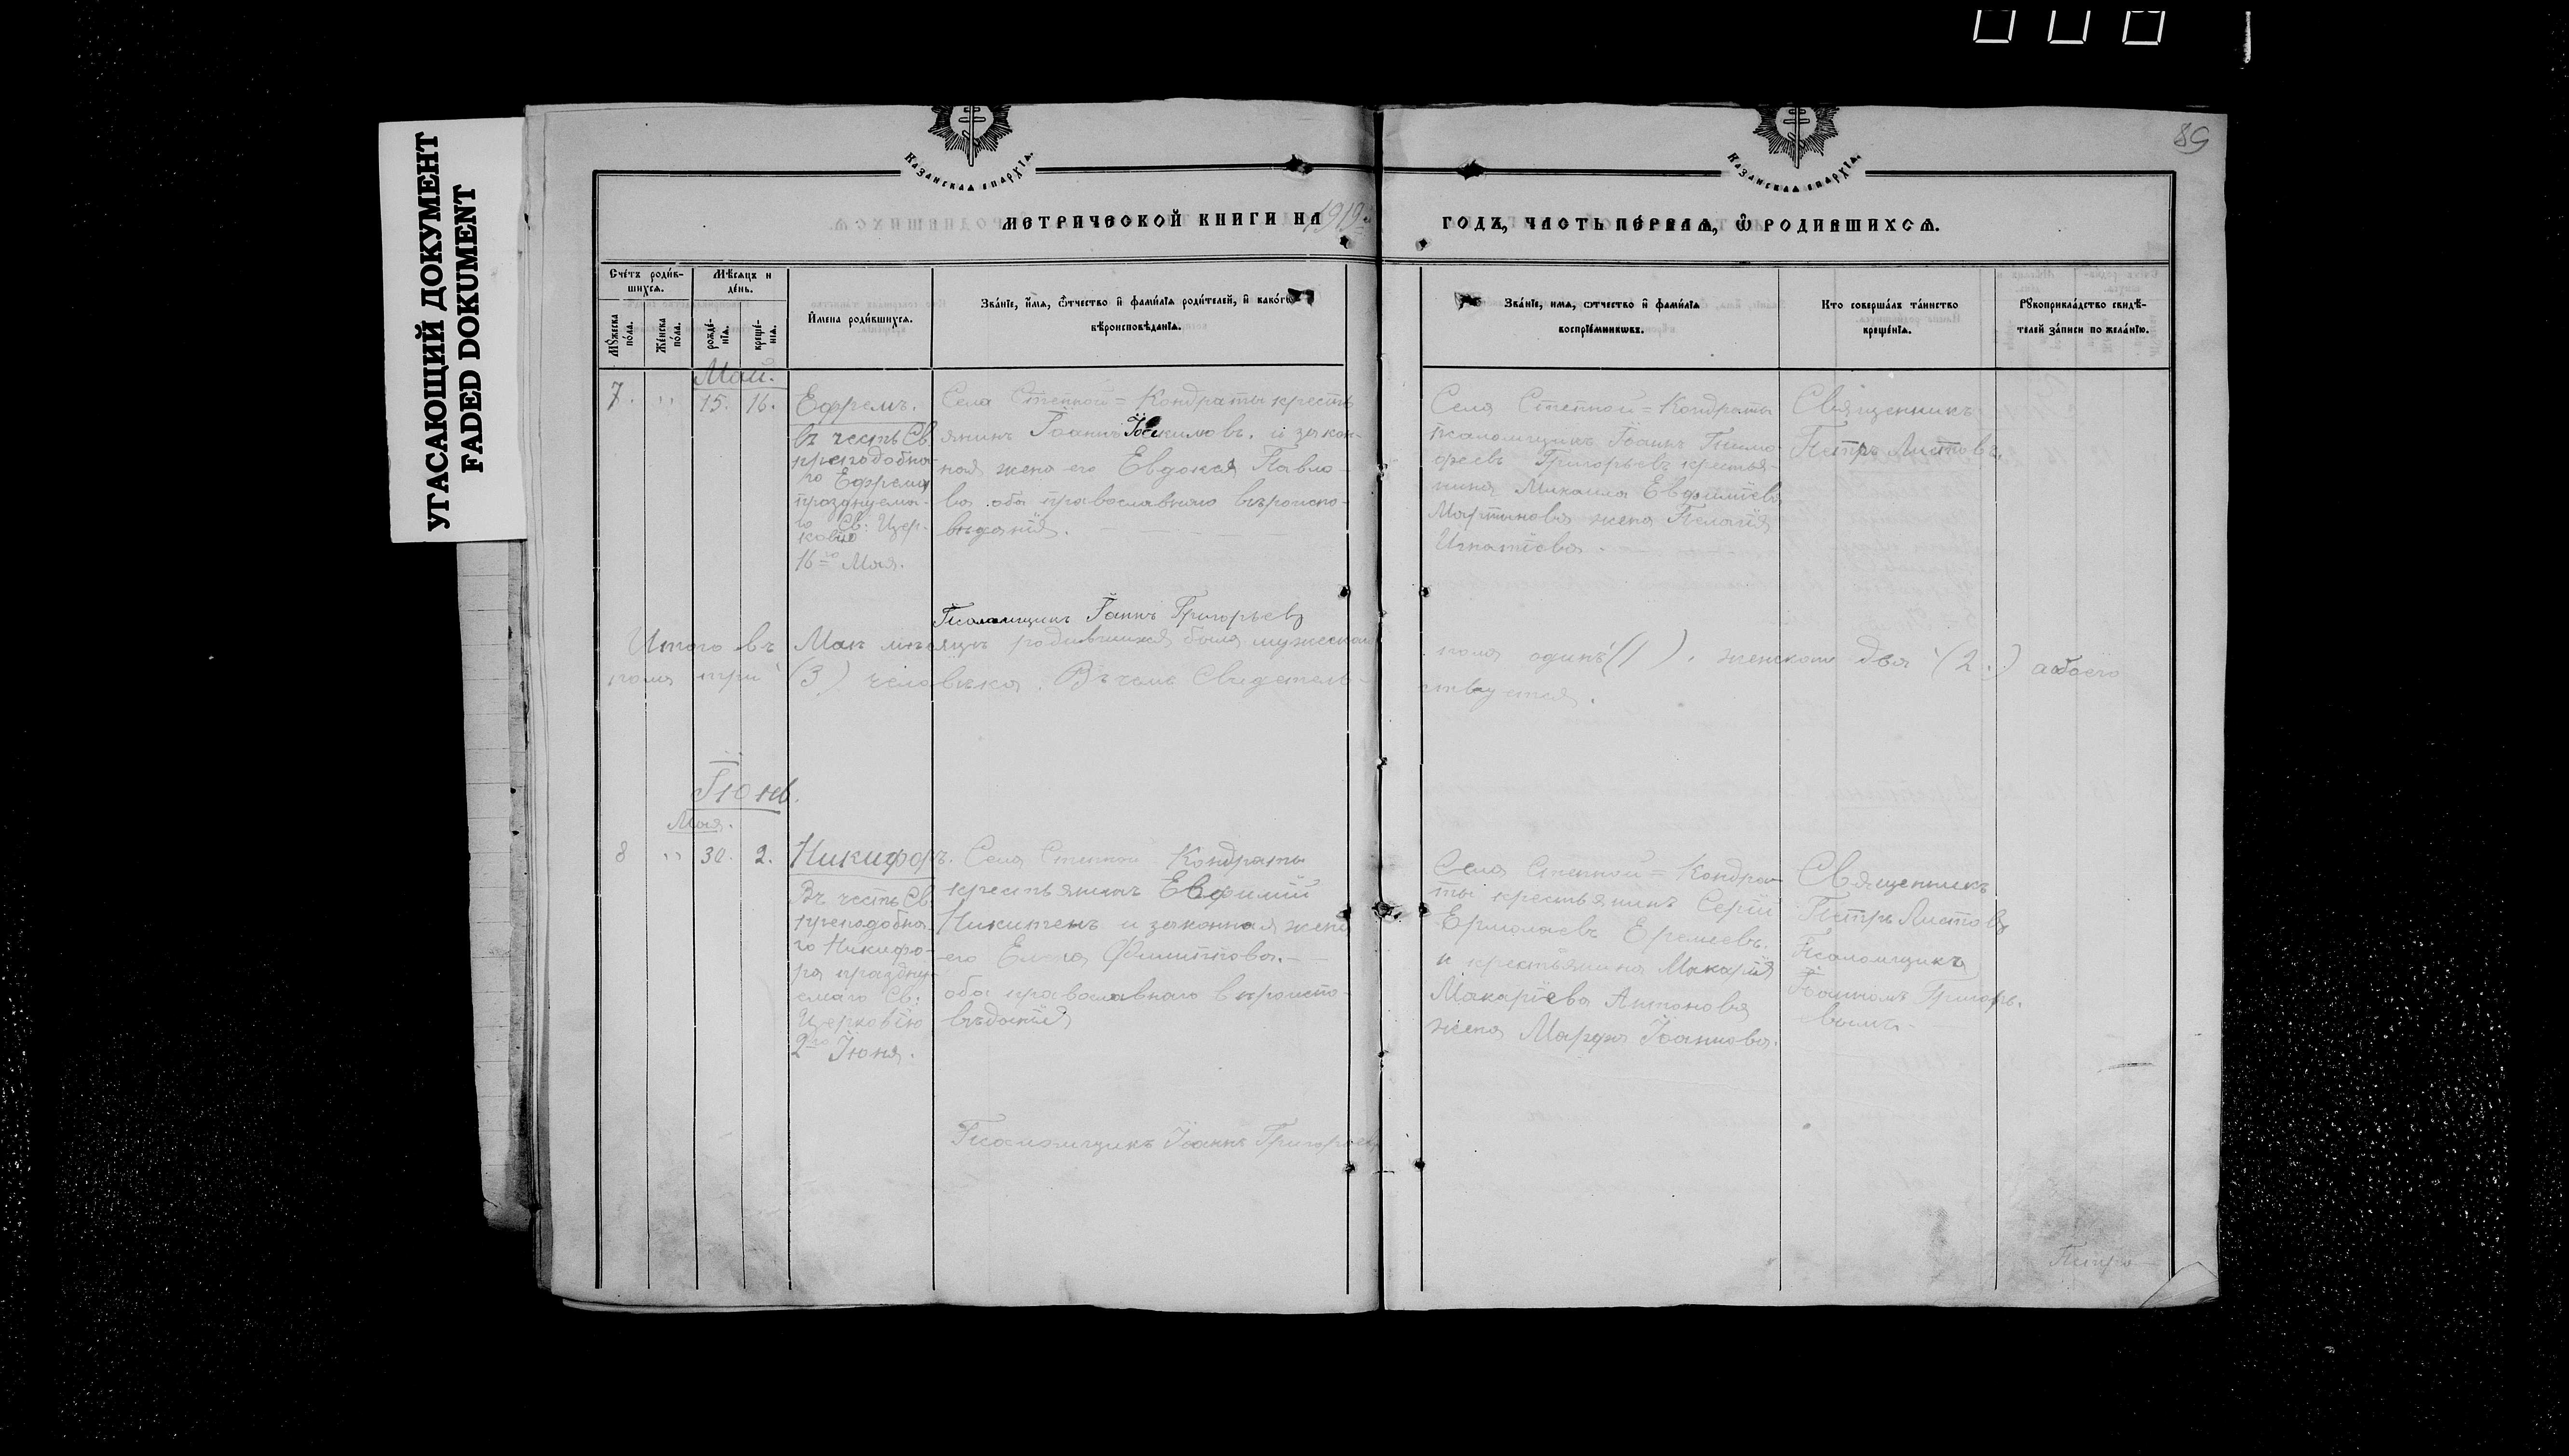 УГАСАЮЩИЙ ДОКУМЕНТ
FADED DOKUMENT
89
Казанская епархія.
Казанская епархія.
МЕТРИЧЕСКОЙ КНИГИ НА 1919
ГОДЪ, ЧАСТЬ ПЕРВАЯ, Ѿ РОДИВШИХСѦ.
Счетъ родив-
шихся.
Мѣсяцъ и
день.
Мужеска пола.
Женска пола.
рожде-
нія.
креще-
нія.
Имена родившихся.
Званіе, имя, ѿтчество и фамилія родителей, и какого
вѣроисповѣданія.
Званіе, имя, ѿтчество и фамилія
воспріемниковъ.
Кто совершалъ таинство
крещенія.
Рукоприкладство свидѣ-
телей записи по желанію.
Май.
7. " 15. 16.
Ефремъ.
въ честь Св.
преподобна-
го Ефрема
празднуема-
го Св: Цер-
ковію
16го Мая.
Села Степной=Кондраты кресть
янинъ Іоаннъ и закон-
ная жена его Евдокія Павло-
ва оба православнаго вѣроиспо-
вѣданія.
Села Степной=Кондраты
псаломщикъ Іоаннъ Тимо
феевъ Григорьевъ крестья-
нина Михаила Евфиміева
Мартынова жена Пелагія
Игнатіева.
Священникъ
Петръ Листовъ.
Псаломщикъ Іоаннъ Григорьевъ
Итого въ Маѣ мѣсяцѣ родившихся было мужескаго
пола одинъ (1), женскаго два (2.) а обоего
пола три (3) человѣка. Въ чемъ Свидетель-
ствуется.
Іюнь.
Мая.
8 " 30. 2.
Никифоръ.
Въ честь Св.
преподобна-
го Никифо-
ра праздну-
емаго Св:
Церковію
2го Іюня.
Села Степной Кондраты
крестьянинъ Евфимій
Никитинъ и законная жена
его Елена Филиппова.
оба православнаго вѣроиспо-
вѣданія
Села Степной=Кондра-
ты крестьянинъ Сергій
Ермолаевъ Еремеевъ.
и крестьянина Макарія
Макаріева Антонова
жена Марфа Іоаннова.
Священникъ
Петръ Листовъ
Псаломщикъ
Іоанномъ Григорь-
вымъ
Псаломщикъ Іоаннъ Григорьевъ
Петръ